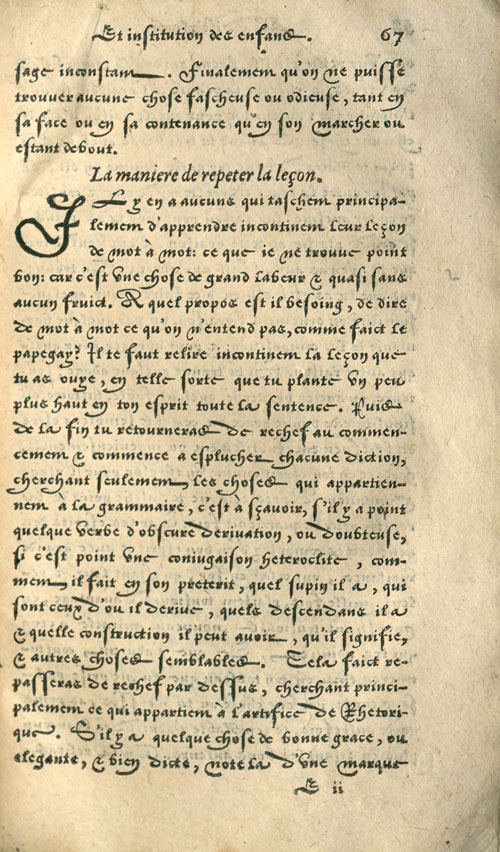 Et institution des enfans. 67
sage inconstant. Finalement qu'on ne puisse
trouver aucune chose fascheuse ou odieuse, tant en
sa face ou en sa contenance qu'en son marcher ou
estant debout.
La maniere de repeter la leçon.
IL y en a aucuns qui taschent principa-
lement d'apprendre incontinent leur leçon
de mot à mot: ce que ie ne trouve point
bon: car c'est vne chose de grand labeur & quasi sans
aucun fruict. A quel propos est il besoing, de dire
de mot à mot ce qu'on n'entend pas, comme faict le
papegay? Il te faut relire incontinent la leçon que
tu as ouye, en telle sorte que tu plante vn peu
plus haut en ton esprit toute la sentence. Puis
de la fin tu retourneras de rechef au commen-
cement & commence à esplucher chacune diction,
cherchant seulement, les choses qui appartien-
nent à la grammaire, c'est à sçavoir, s'il y a point
quelque verbe d'obscure derivation, ou doubteuse,
si c'est point vne coniugaison heteroclite, com-
ment, il fait en son preterit, quel supin il a, qui
sont ceux d'ou il derive, quels descendans il a
& quelle construction il peut avoir, qu'il signifie,
& autres choses semblables. Cela faict re-
passeras de rechef par dessus, cherchant princi-
palement ce qui appartient à l'artifice de Rhetori-
que. S'il y a quelque chose de bonne grace, ou
elegante, & bien dicte, note la d'vne marque
E ii